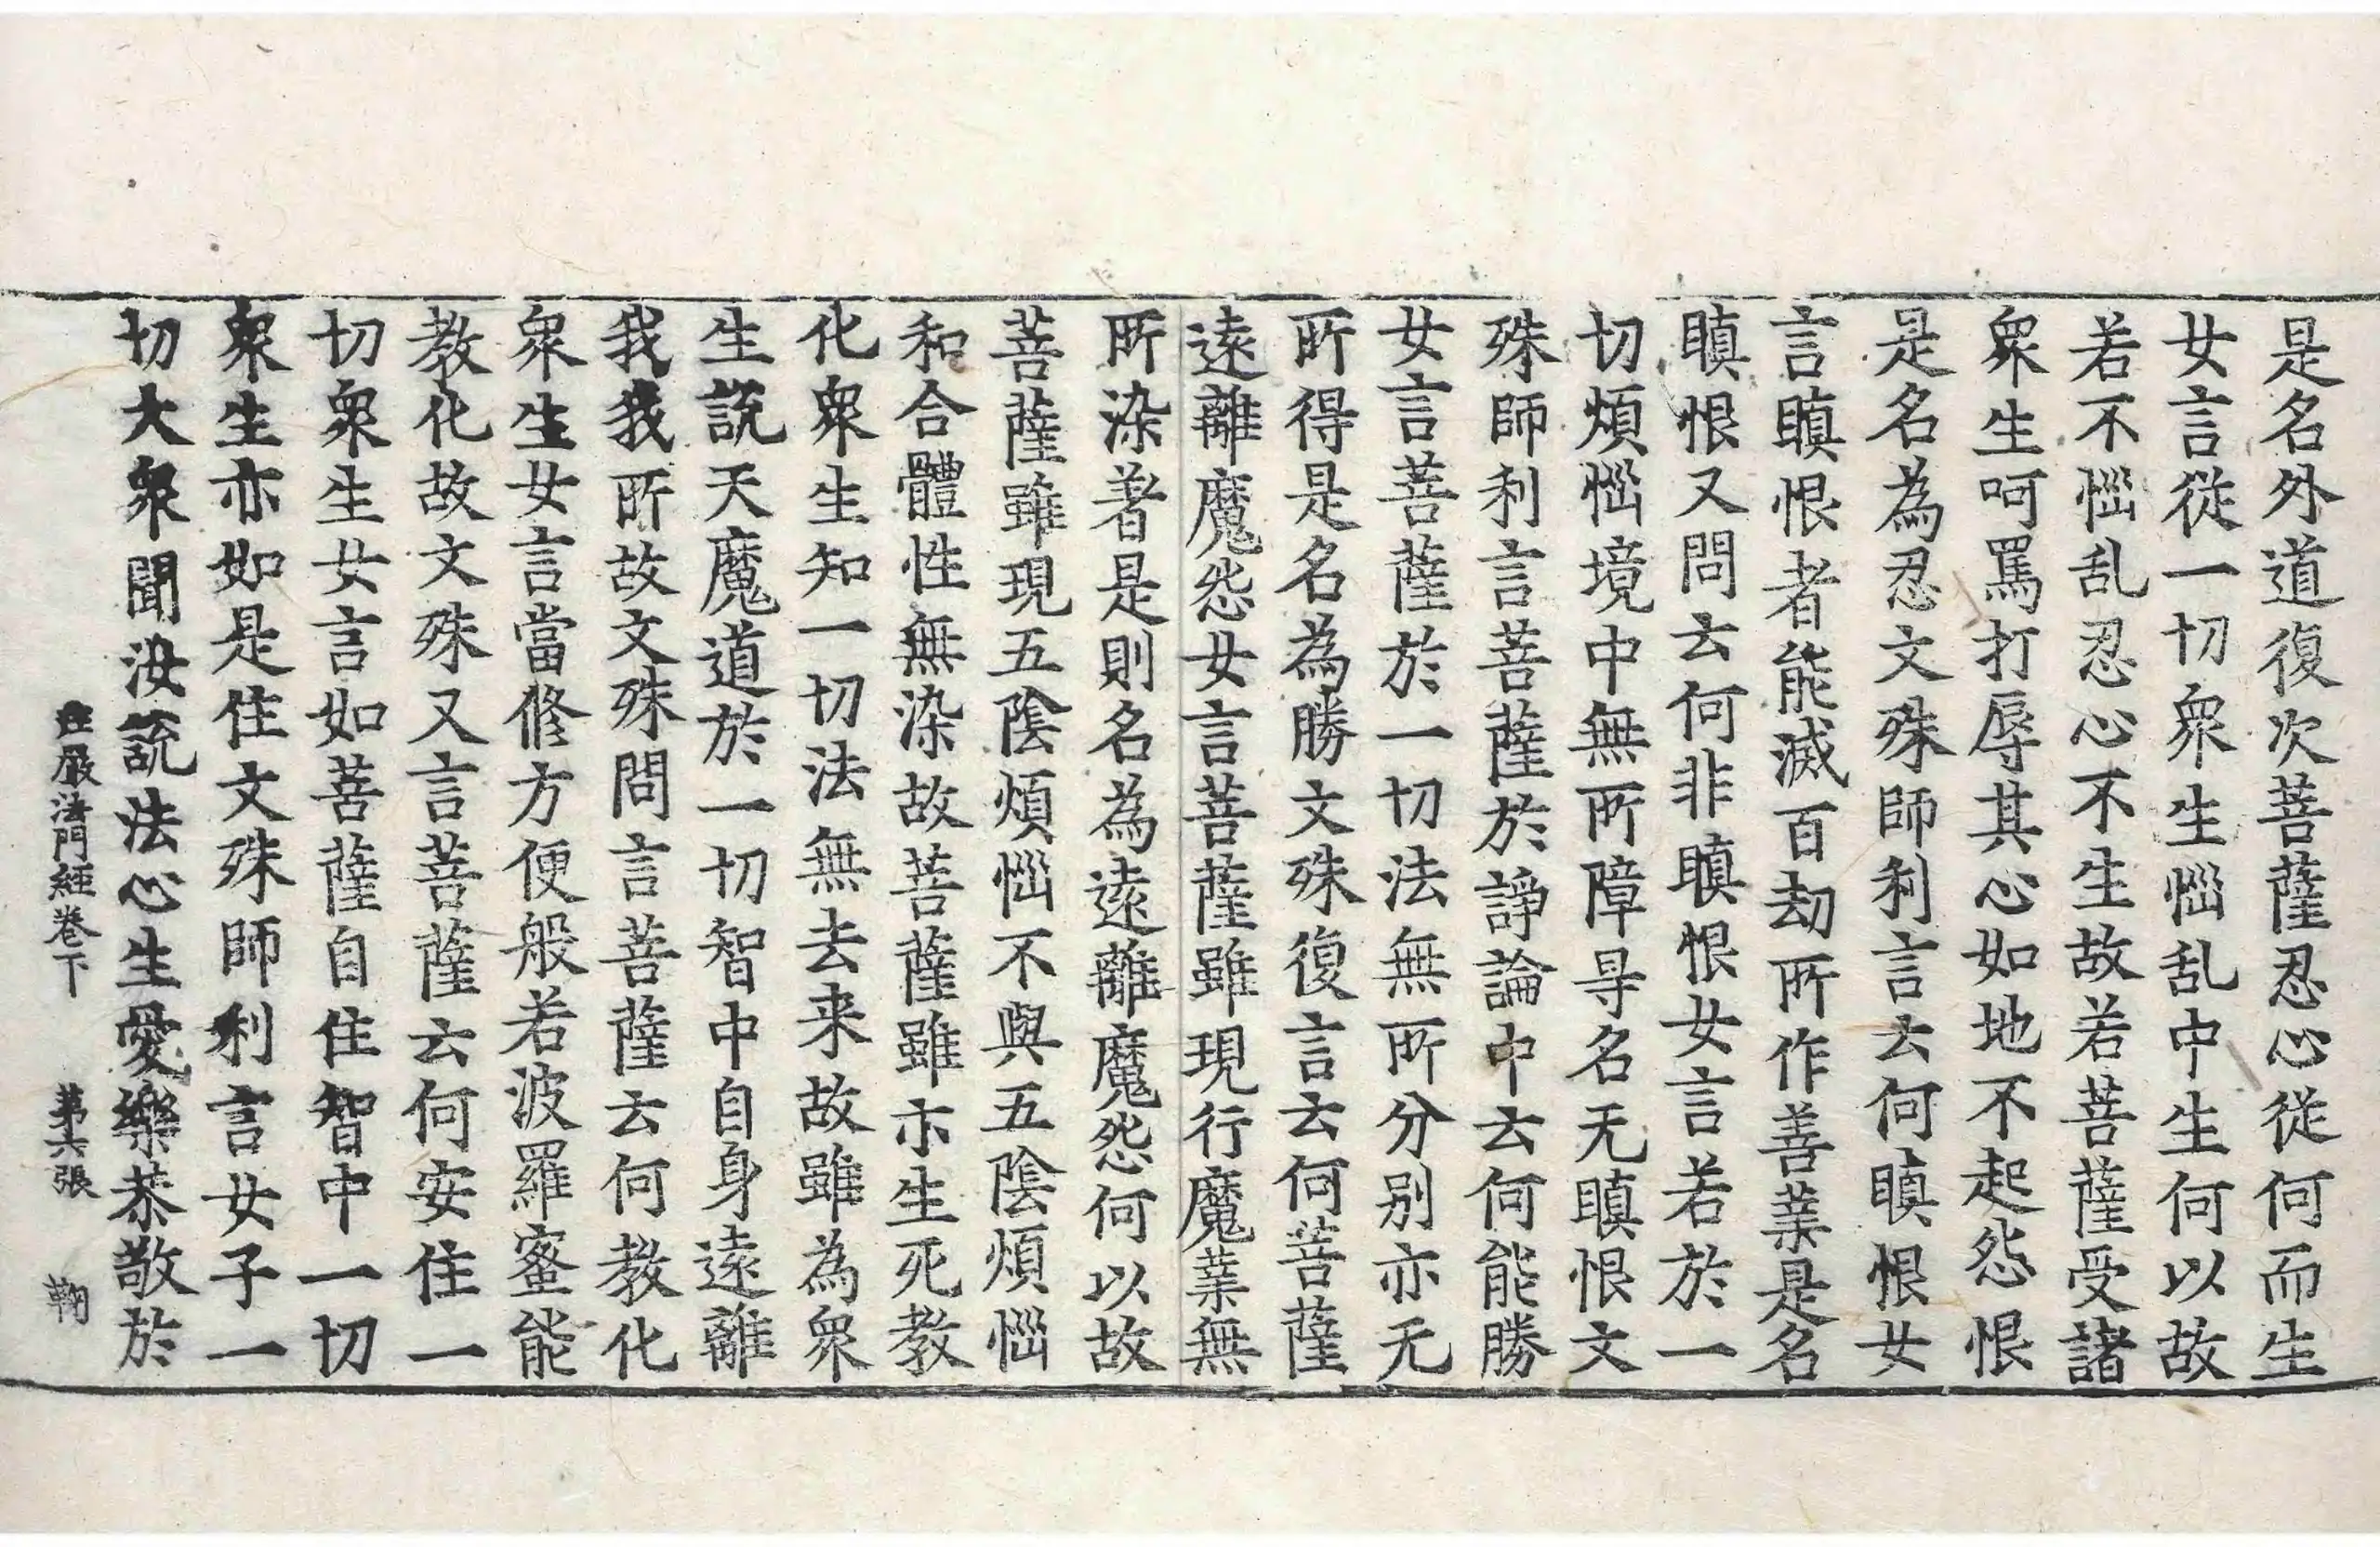 是名外道復次菩薩忍心從何而生
女言從一切衆生惱乱中生何以故
若不惱乱忍心不生故若菩薩受諸
衆生呵罵打辱其心如地不起怨恨
是名為忍文殊師利言云何瞋恨女
言瞋恨者能滅百劫所作善業是名
瞋恨又問云何非瞋恨女言若於一
切煩惱境中無所障㝵名无瞋恨文
殊師利言菩薩於諍論中云何能勝
女言菩薩於一切法無所分别亦无
所得是名為勝文殊復言云何菩薩
遠離魔怨女言菩薩雖現行魔業無
所染著是則名為遠離魔怨何以故
菩薩雖現五陰煩惱不與五陰煩惱
和合體性無染故菩薩雖亦生死教
化衆生知一切法無去来故雖為衆
生說天魔道於一切智中自身遠離
我我所故文殊問言菩薩云何教化
衆生女言當修方便般若波羅蜜能
教化故文殊又言菩薩云何安住一
切衆生女言如菩薩自住智中一切
衆生亦如是住文殊師利言女子一
切大衆聞汝說法心生愛樂恭敬於
莊嚴法門經卷下 第六張 鞠